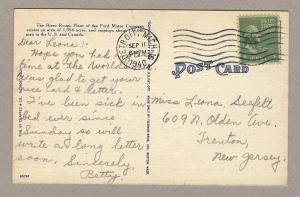 The River Rouge Plant of the Ford Motor Company
covers an area of 1,096 acres, and employs about
men in the U. S. and Canada.
Dear Leona:
Hope you had
time at the World's
was glad to get your
nice card & letter.
I've been sick in
bed ever since
Sunday so will
write a long letter
soon. Sincerely,
Betty
DETROIT, MICH.
SEP 11
1940
POST CARD
Miss Leona Seefelt
609 N. Olden Ave.
Trenton,
New Jersey.